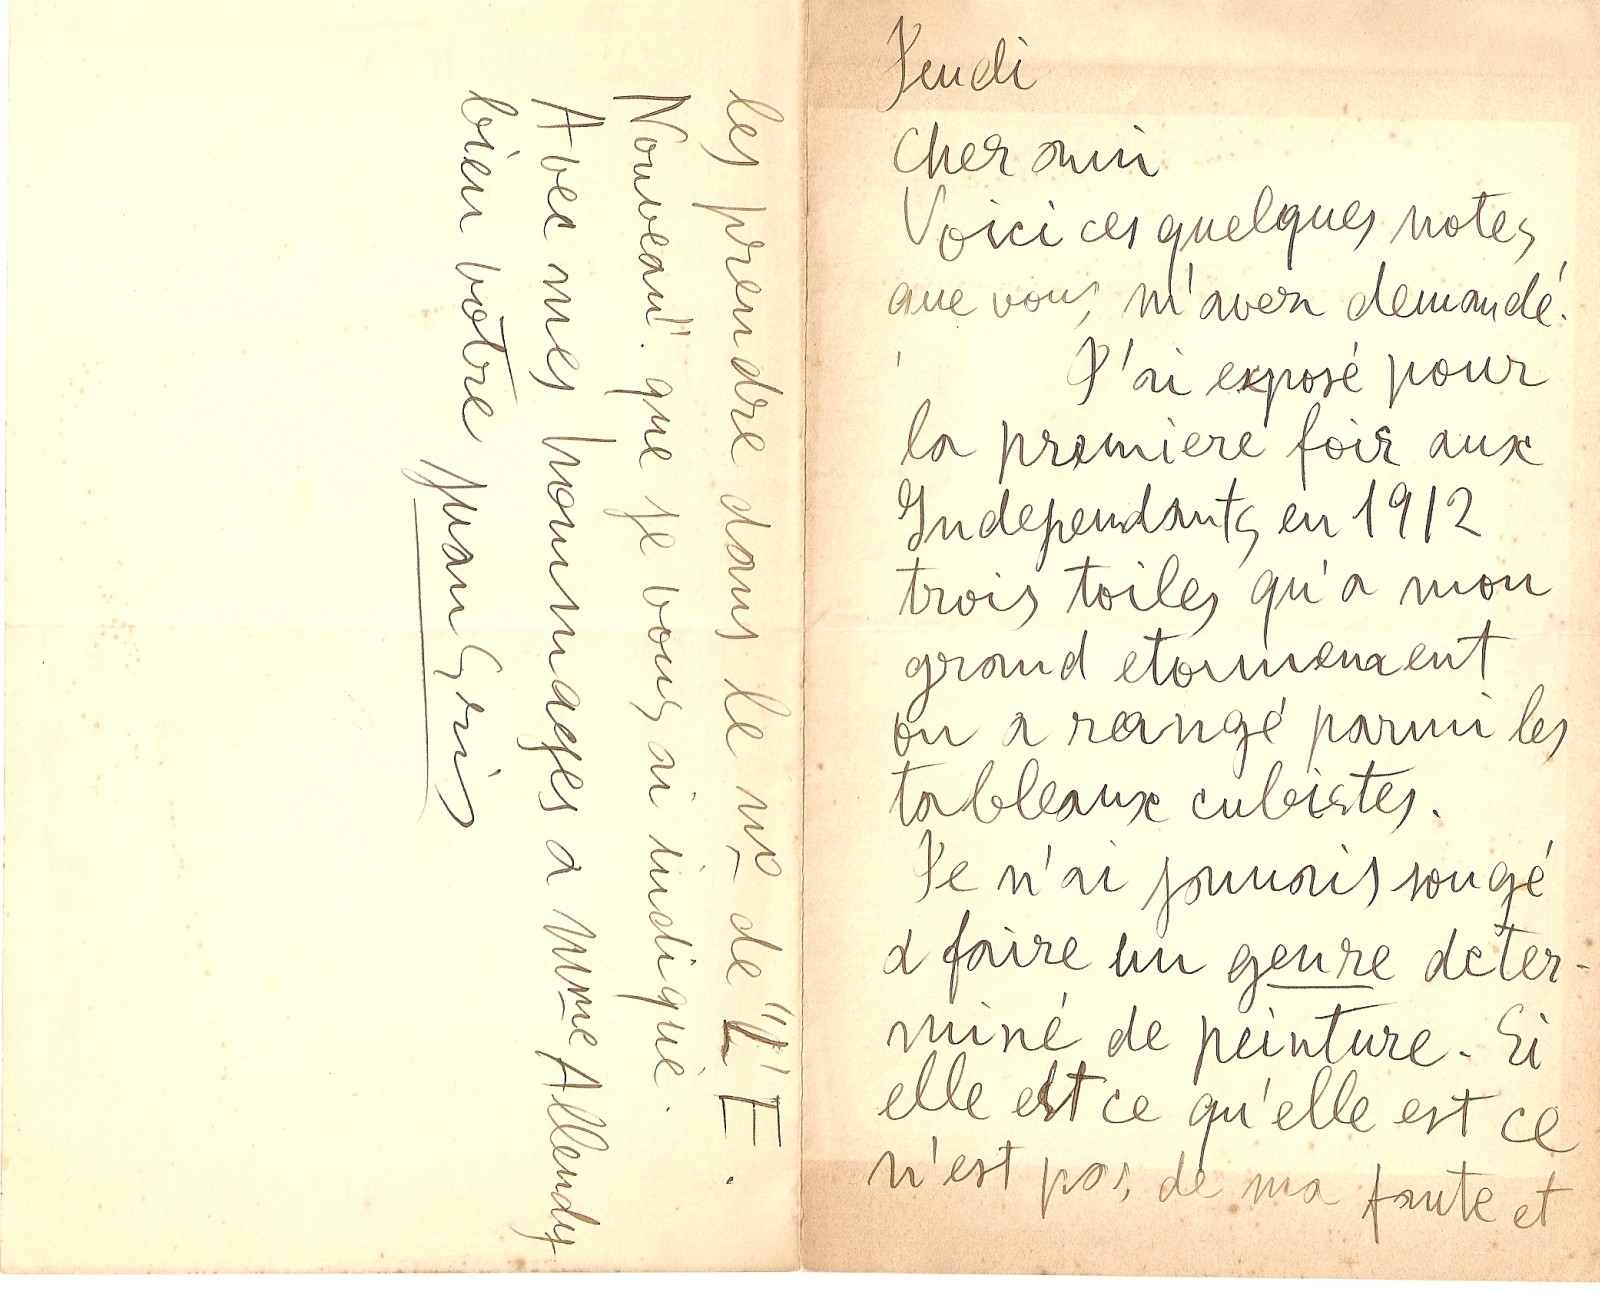 Jeudi
Cher ami
Voici ces quelques notes
que vous m'avez demandé.
J'ai exposé pour
la premiere fois aux
Independants en 1912
trois toiles qu'a mon
grand etonnement
on a rangé parmi les
tableaux cubistes.
Je n'ai jamais songé
a faire un genre deter-
miné de peinture. Si
elle est ce qu'elle est ce
n'est pas de ma faute et
les prendre dans le nº de "L'E.
Nouveau". que je vous ai indiqué.
Avec mes hommages a Mme Allendy
bien votre Juan Gris